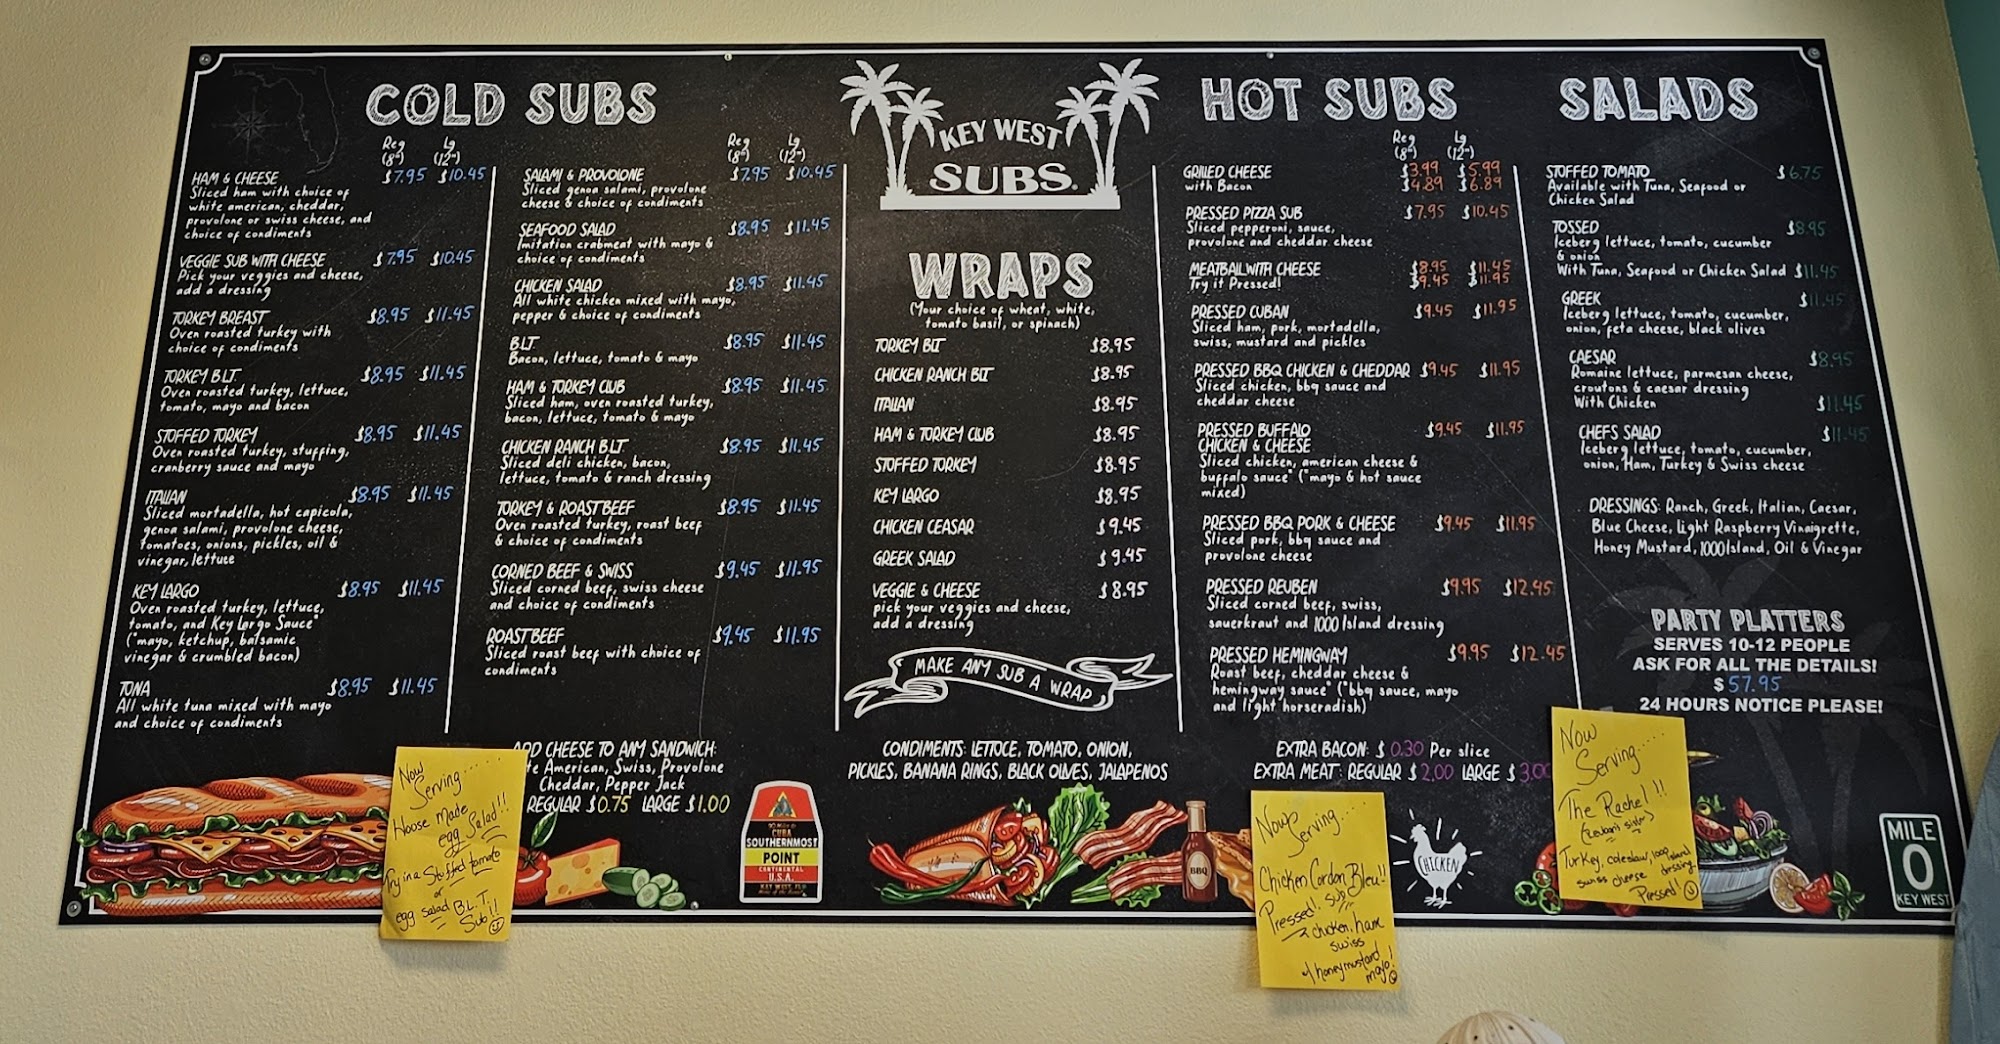 COLD SUBS
Reg Lg
(8") (12")
HAM & CHEESE $7.95 $10.45
Sliced ham with choice of
white american, cheddar,
provolone or swiss cheese, and
choice of condiments
VEGGIE SUB WITH CHEESE $7.95 $10.45
Pick your veggies and cheese,
add a dressing
TURKEY BREAST $8.95 $11.45
Oven roasted turkey with
choice of condiments
TURKEY B.L.T. $8.95 $11.45
Oven roasted turkey, lettuce,
tomato, mayo and bacon
STUFFED TURKEY $8.95 $11.45
Oven roasted turkey, stuffing,
cranberry sauce and mayo
ITALIAN $8.95 $11.45
Sliced mortadella, hot capicola,
genoa salami, provolone cheese,
tomatoes, onions, pickles, oil &
vinegar, lettuce
KEY LARGO $8.95 $11.45
Oven roasted turkey, lettuce,
tomato, and Key Largo Sauce*
(*mayo, ketchup, balsamic
vinegar & crumbled bacon)
TUNA $8.95 $11.45
All white tuna mixed with mayo
and choice of condiments
Reg Lg
(8") (12")
SALAMI & PROVOLONE $7.95 $10.45
Sliced genoa salami, provolone
cheese & choice of condiments
SEAFOOD SALAD $8.95 $11.45
Imitation crabmeat with mayo &
choice of condiments
CHICKEN SALAD $8.95 $11.45
All white chicken mixed with mayo,
pepper & choice of condiments
B.L.T. $8.95 $11.45
Bacon, lettuce, tomato & mayo
HAM & TURKEY CLUB $8.95 $11.45
Sliced ham, oven roasted turkey,
bacon, lettuce, tomato & mayo
CHICKEN RANCH B.L.T. $8.95 $11.45
Sliced deli chicken, bacon,
lettuce, tomato & ranch dressing
TURKEY & ROAST BEEF $8.95 $11.45
Oven roasted turkey, roast beef
& choice of condiments
CORNED BEEF & SWISS $9.45 $11.95
Sliced corned beef, swiss cheese
and choice of condiments
ROAST BEEF $9.45 $11.95
Sliced roast beef with choice of
condiments
ADD CHEESE TO ANY SANDWICH:
American, Swiss, Provolone
Cheddar, Pepper Jack
REGULAR $0.75 LARGE $1.00
KEY WEST
SUBS
WRAPS
(Your choice of wheat, white,
tomato basil, or spinach)
TURKEY BLT $8.95
CHICKEN RANCH BLT $8.95
ITALIAN $8.95
HAM & TURKEY CLUB $8.95
STUFFED TURKEY $8.95
KEY LARGO $8.95
CHICKEN CEASAR $9.45
GREEK SALAD $9.45
VEGGIE & CHEESE $8.95
pick your veggies and cheese,
add a dressing
MAKE ANY SUB A WRAP
CONDIMENTS: LETTUCE, TOMATO, ONION,
PICKLES, BANANA RINGS, BLACK OLIVES, JALAPENOS
HOT SUBS
Reg Lg
(8") (12")
GRILLED CHEESE $3.99 $5.99
with Bacon $4.89 $6.89
PRESSED PIZZA SUB $7.95 $10.45
Sliced pepperoni, sauce,
provolone and cheddar cheese
MEATBALL WITH CHEESE $8.95 $11.45
Try it Pressed! $9.45 $11.95
PRESSED CUBAN $9.45 $11.95
Sliced ham, pork, mortadella,
swiss, mustard and pickles
PRESSED BBQ CHICKEN & CHEDDAR $9.45 $11.95
Sliced chicken, bbq sauce and
cheddar cheese
PRESSED BUFFALO $9.45 $11.95
CHICKEN & CHEESE
Sliced chicken, american cheese &
buffalo sauce* (*mayo & hot sauce
mixed)
PRESSED BBQ PORK & CHEESE $9.45 $11.95
Sliced pork, bbq sauce and
provolone cheese
PRESSED REUBEN $9.95 $12.45
Sliced corned beef, swiss,
sauerkraut and 1000 Island dressing
PRESSED HEMINGWAY $9.95 $12.45
Roast beef, cheddar cheese &
hemingway sauce* (*bbq sauce, mayo
and light horseradish)
EXTRA BACON: $0.30 Per slice
EXTRA MEAT: REGULAR $2.00 LARGE $3.00
SALADS
STUFFED TOMATO $6.75
Available with Tuna, Seafood or
Chicken Salad
TOSSED $8.95
Iceberg lettuce, tomato, cucumber
& onion
With Tuna, Seafood or Chicken Salad $11.45
GREEK $11.45
Iceberg lettuce, tomato, cucumber,
onion, feta cheese, black olives
CAESAR $8.95
Romaine lettuce, parmesan cheese,
croutons & caesar dressing
With Chicken $11.45
CHEFS SALAD $11.45
Iceberg lettuce, tomato, cucumber,
onion, Ham, Turkey & Swiss cheese
DRESSINGS: Ranch, Greek, Italian, Caesar,
Blue Cheese, Light Raspberry Vinaigrette,
Honey Mustard, 1000Island, Oil & Vinegar
PARTY PLATTERS
SERVES 10-12 PEOPLE
ASK FOR ALL THE DETAILS!
$57.95
24 HOURS NOTICE PLEASE!
Now
Serving......
House Made
egg Salad!!
Try in a Stuffed tomato
or
egg salad B.L.T.
Sub!!
CUBA
SOUTHERNMOST
POINT
CONTINENTAL
U.S.A.
KEY WEST, FL
BBQ
Now
Serving....
Chicken Cordon Bleu!!
Pressed!! sub
chicken, ham
swiss
w/ honeymustard
mayo!
CHICKEN
Now
Serving.....
The Rachel!!
(Reubens sister)
Turkey, coleslaw, 1000 island
swiss cheese dressing
Pressed!
MILE
0
KEY WEST